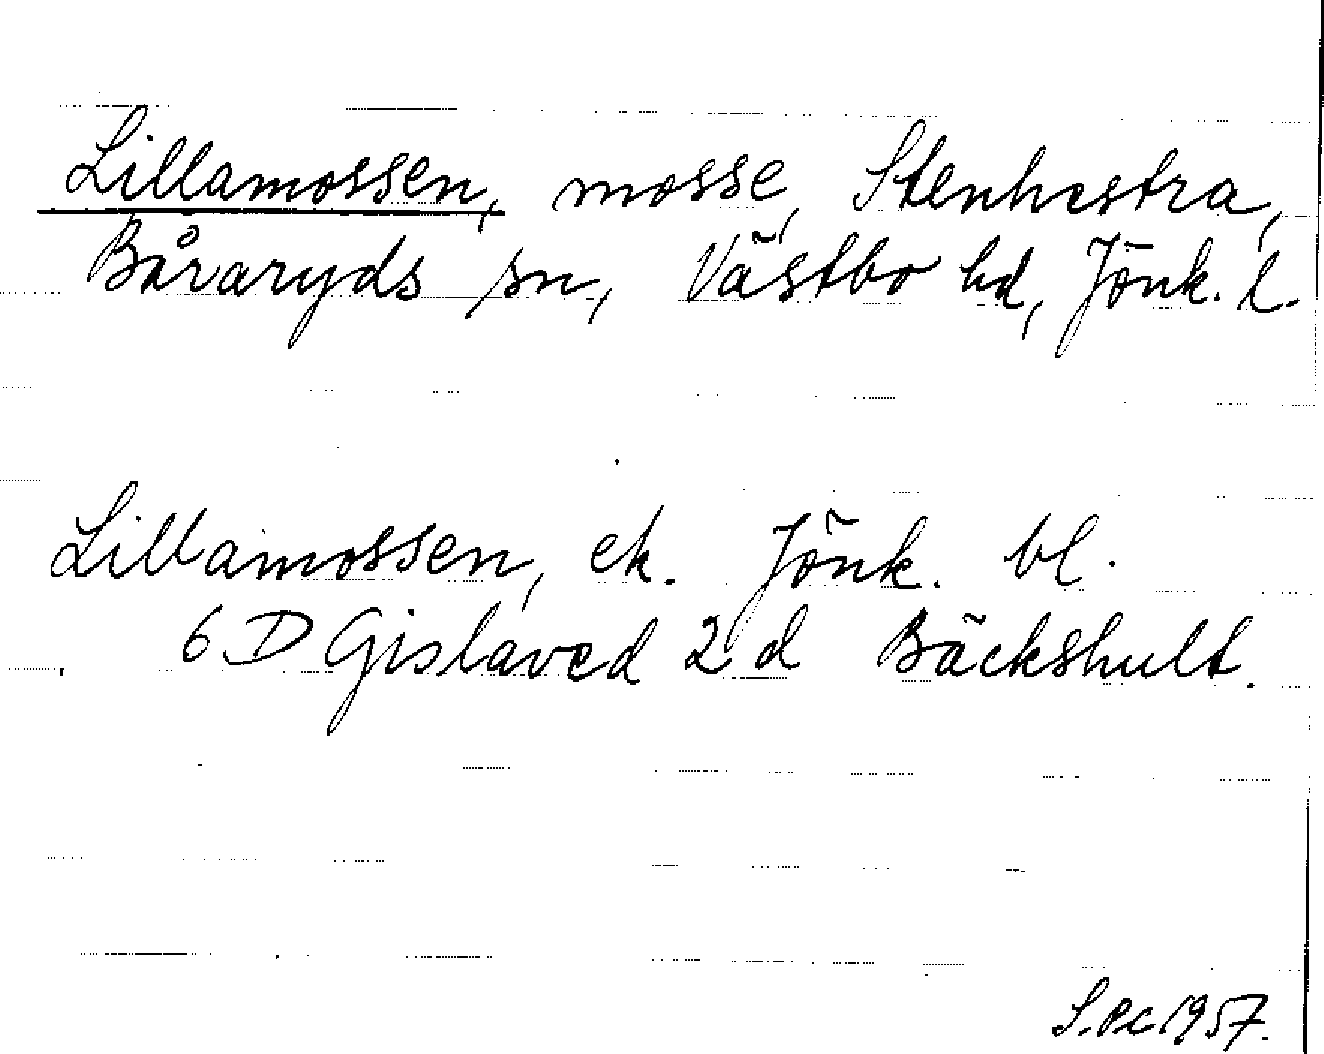 Lillamossen, mosse, Stenhestra,
Båraryds sn, Västbo hd, Jönk. l.
Lillamossen, ek. Jönk. bl.
6 D Gislaved 2 d Bäckshult.
S.Pc 1957.